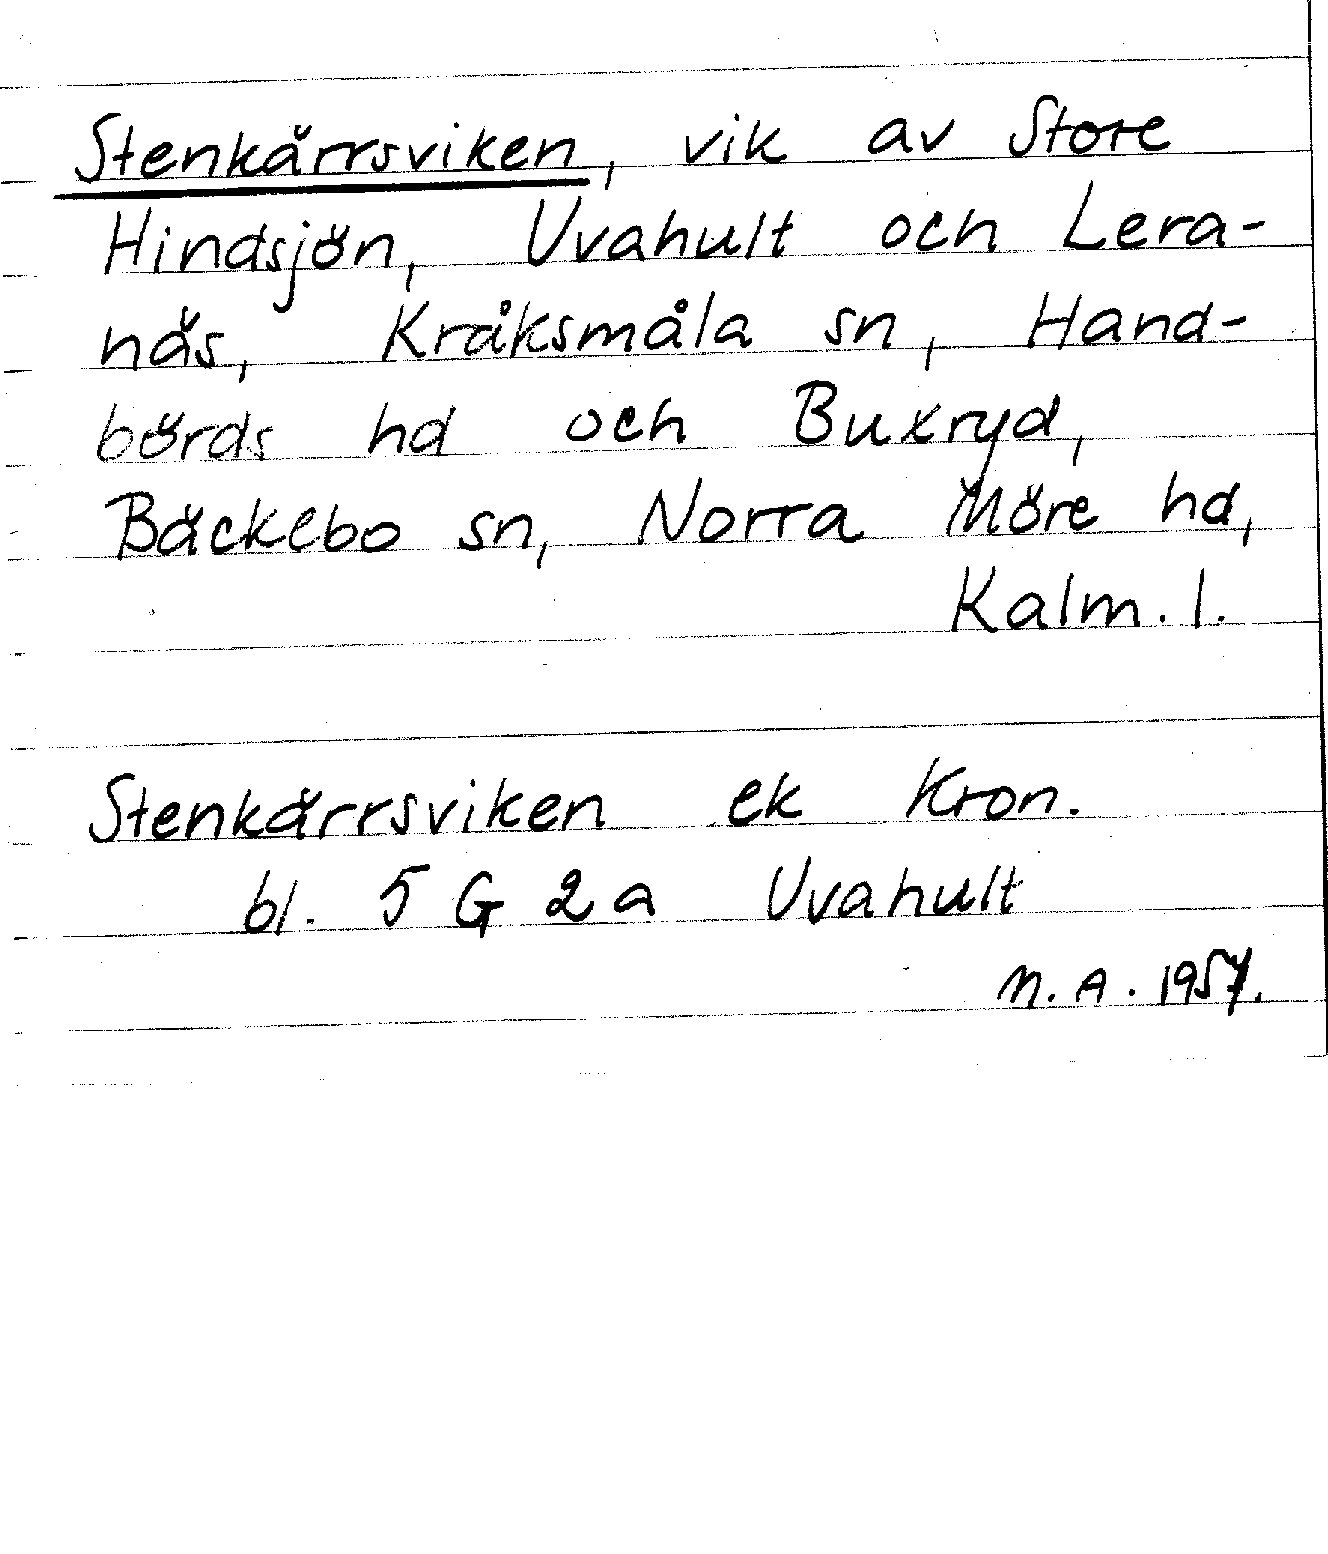 Stenkärrsviken, vik av Store
Hindsjön, Uvahult och Lera-
näs, Kråksmåla sn, Hand-
börds hd och Buxryd,
Bäckebo sn, Norra Möre hd,
Kalm. l.
Stenkärrsviken ek Kron.
bl. 5 G 2 a Uvahult
N. A. 1957.